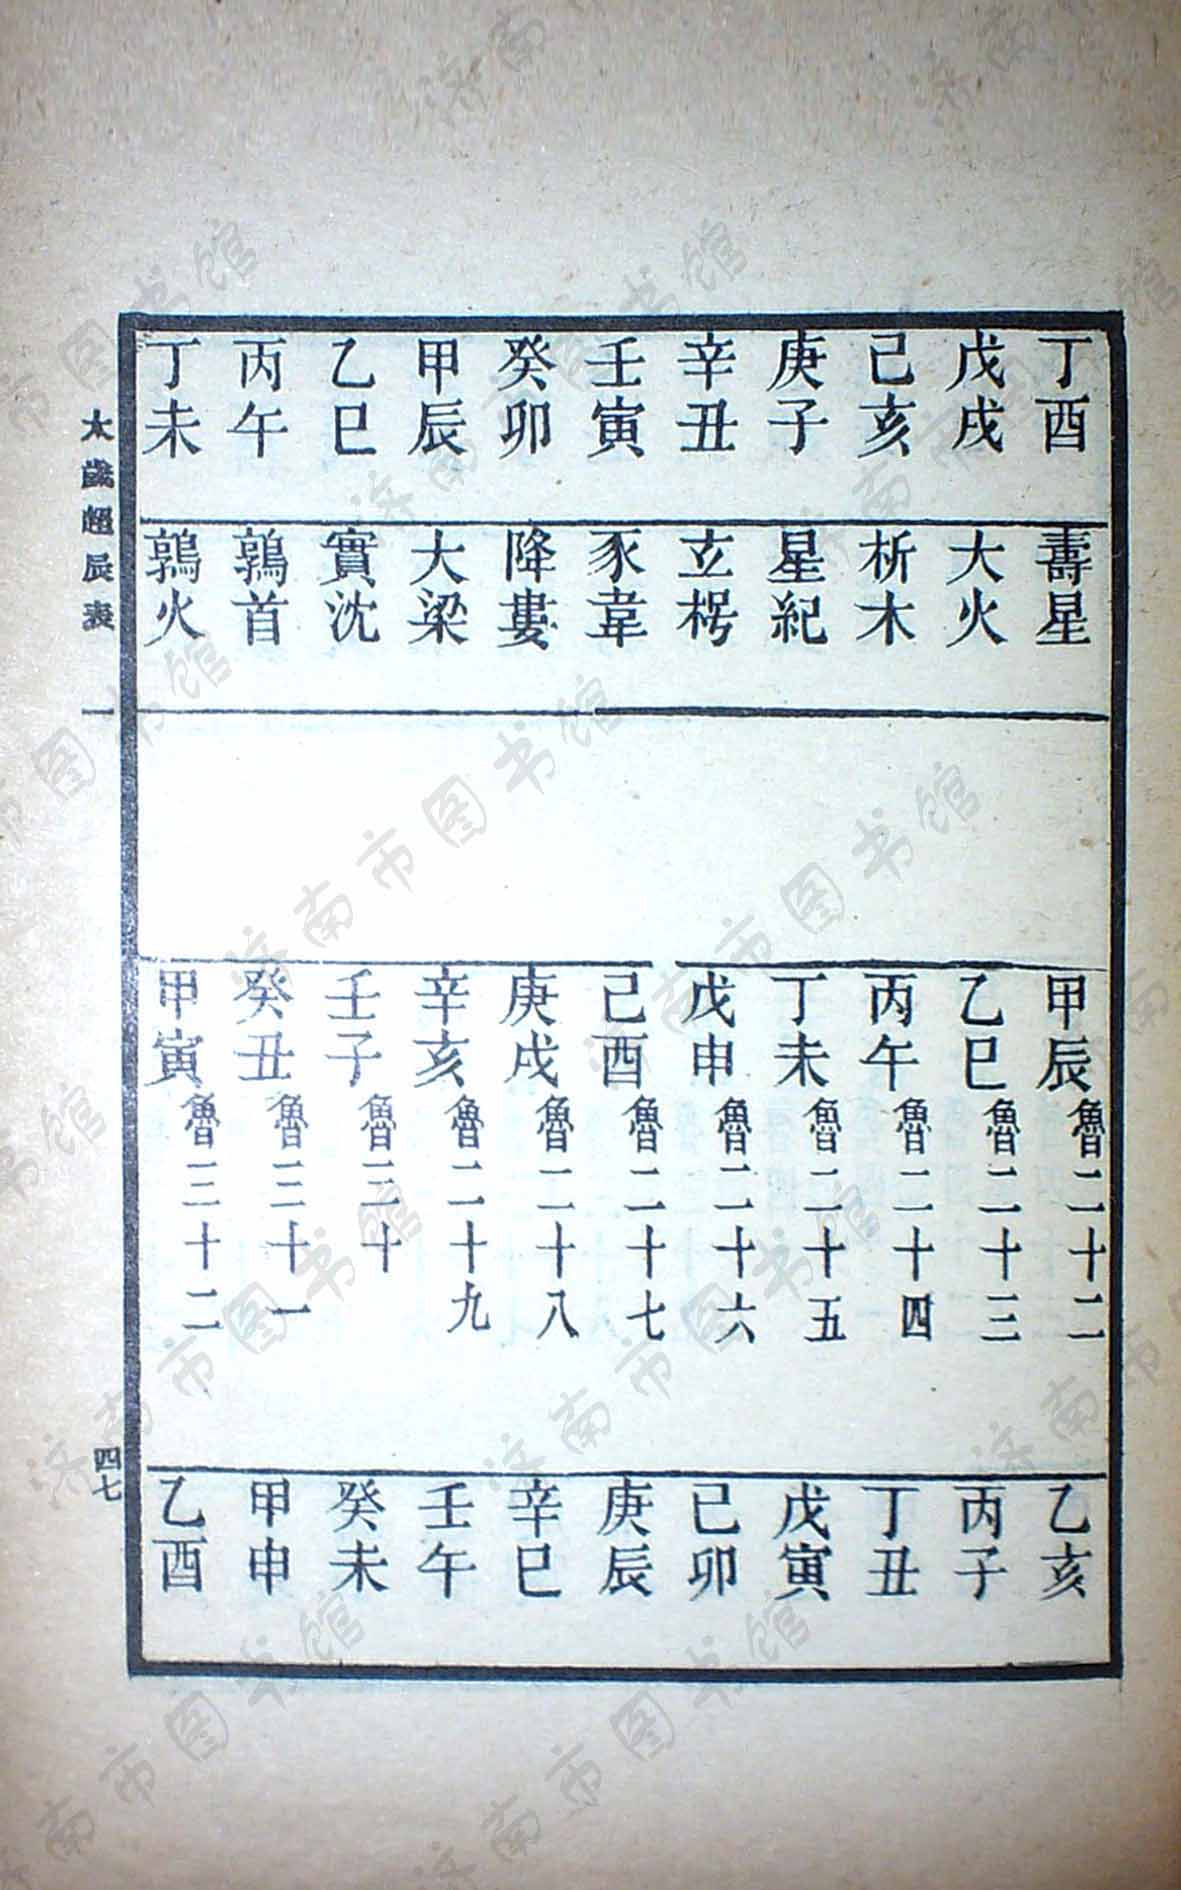 丁酉 壽星 甲辰 魯二十二 乙亥
戊戌 大火 乙巳 魯二十三 丙子
己亥 析木 丙午 魯二十四 丁丑
庚子 星紀 丁未 魯二十五 戊寅
辛丑 立枵 戊申 魯二十六 己卯
壬寅 豕韋 己酉 魯二十七 庚辰
癸卯 降婁 庚戌 魯二十八 辛巳
甲辰 大梁 辛亥 魯二十九 壬午
乙巳 實沈 壬子 魯三十 癸未
丙午 鶉首 癸丑 魯三十一 甲申
丁未 鶉火 甲寅 魯三十二 乙酉
太歲超辰表 一 四七
济南市图书馆